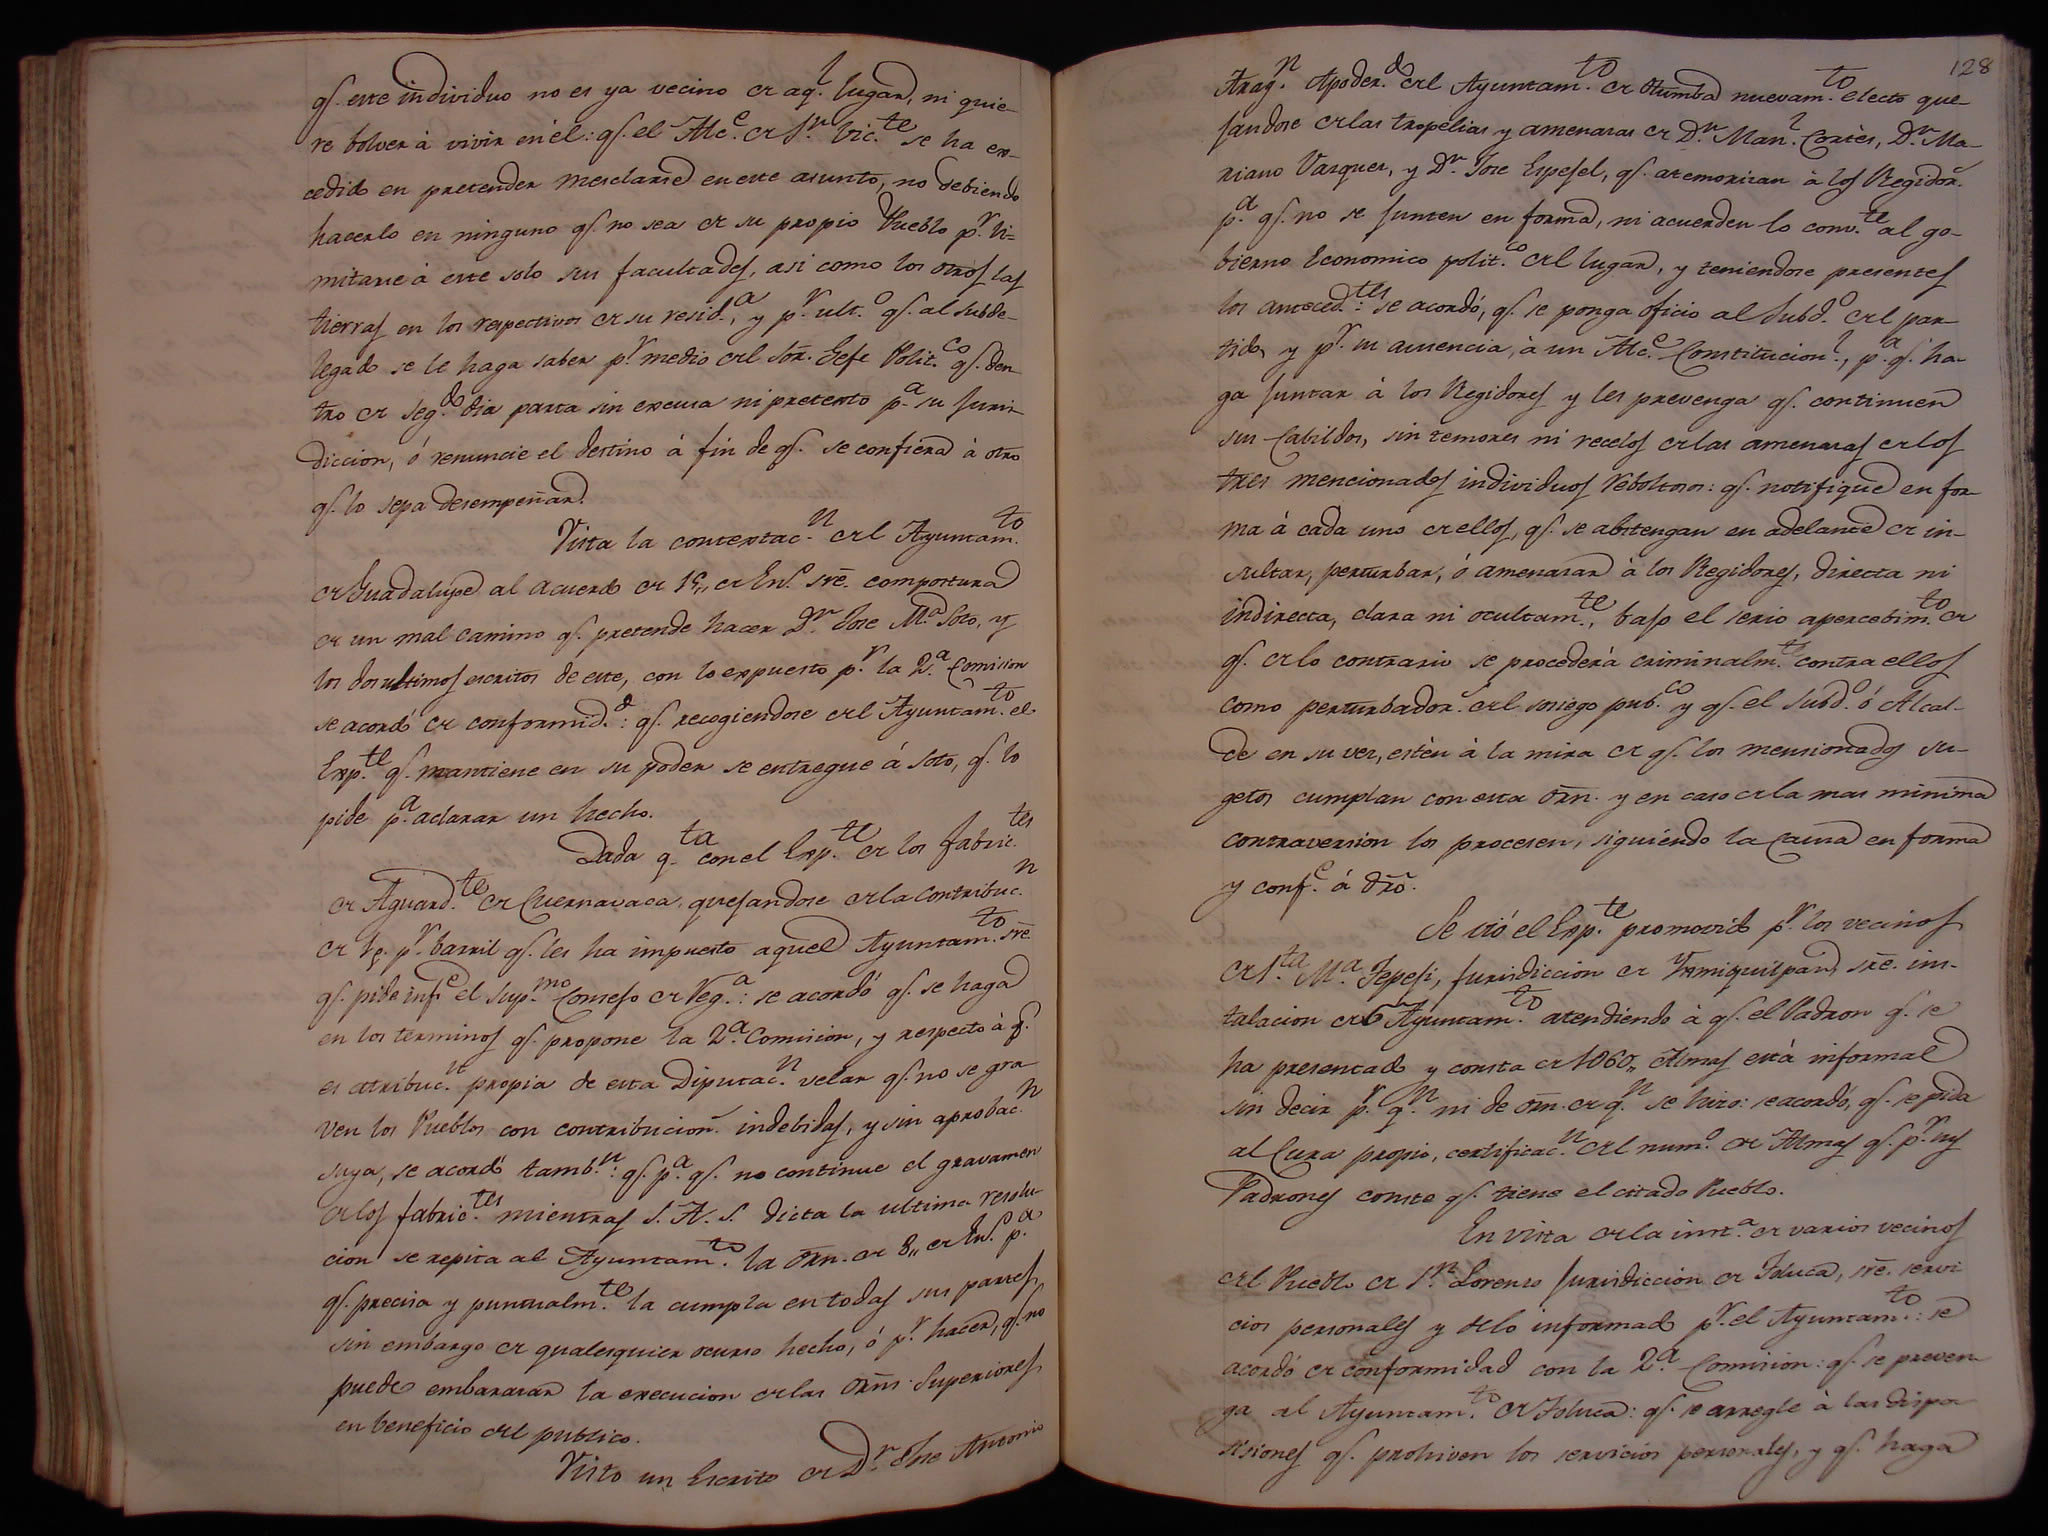 qe. este individuo no es ya vecino de aql. lugar, ni quie-
re bolver á vivir en él: qe. el Alce. de Sn. Victe. se ha ex-
cedido en pretender mesclarse en este asunto, no debiendo
hacerlo en ninguno qe. no sea de su propio Pueblo pr. li-
mitarse á este solo sus facultades, asi como los otros las
tierras en los respectivos de su resida., y pr. ulto. qe. al Subde-
legado se le haga saber pr. medio del Sor. Gefe Politco. qe. den-
tro de segdo. dia parta sin excusa ni pretexto pa. su Juris-
diccion, ó renuncie el destino á fin de qe. se confiera á otro
qe. lo sepa desempeñar.
Vista la contextacn. del Ayuntamto.
de Guadalupe al acuerdo de 15,, de Eno. sre. compostura
de un mal camino qe. pretende hacer Dn. Jose Ma. Soto, y
los dos ultimos escritos de este, con lo expuesto pr. la 2a. Comision
se acordó de conformidd.: qe. recogiendose del Ayuntamto. el
Expte. qe. mantiene en su poder se entregue á Soto, qe. lo
pide pa. aclarar un hecho.
Dada qta. con el Expte. de los fabrictes.
de Aguardte. de Cuernavaca, quejandose de la contribucn.
de 1p. pr. barril qe. les ha impuesto aquel Ayuntamto. sre.
qe. pide infe. el Supmo. Consejo de Rega.: se acordó qe. se haga
en los terminos qe. propone la 2a. Comision, y respecto á qe.
es atribucn. propia de esta Diputacn. velar qe. no se gra-
ven los Pueblos con contribucion. indebidas, y sin aprobacn.
suya, se acordó tambn.: qe. pa. qe. no continue el gravamen
de los fabrictes. mientras S. A. S. dicta la ultima resolu-
cion se repita al Ayuntamto. la orn. de 8,, de Eno. pa.
qe. precisa y puntualmte. la cumpla en todas sus partes,
sin embargo de qualesquier ocurso hecho, ó pr. hacer, qe. no
puede embarasar la execucion de las orns. Superiores
en beneficio del publico.
Visto un Escrito de Dn. Jose Antonio
128
Aragn. Apoderd. del Ayuntamto. de Otumba nuevamto. electo que-
jandose de las tropelias y amenasas de Dn. Manl. Cortès, Dn. Ma-
riano Vasques, y Dn. Jose Espejel, qe. atemorizan á los Regidor.
pa. qe. no se junten en forma, ni acuerden lo convte. al go-
bierno Economico politco. del lugar, y teniendose presentes
los antecedtes.: se acordó, qe. se ponga oficio al Subdo. del par-
tido, y pr. su ausencia, à un Alce. Constitucionl., pa. qe. ha-
ga juntar à los Regidores y les prevenga qe. continuen
sus Cabildos, sin temores ni recelos de las amenasas de los
tres mencionados individuos reboltosos: qe. notifique en for-
ma á cada uno de ellos, qe. se abstengan en adelante de in-
sultar, perturbar, ó amenasar à los Regidores, directa ni
indirecta, clara ni ocultamte., bajo el serio apercebimto. de
qe. de lo contrario se procederá criminalmte. contra ellos
como perturbador. del sosiego pubco. y qe. el Subdo. ó Alcal-
de en su ves, estèn à la mira de qe. los mensionados su-
getos cumplan con esta orn. y en caso de la mas minima
contraversion los procesen, siguiendo la Causa en forma
y confe. á dro.
Se vió el Expte. promovido pr. los vecinos
de Sta. Ma. Tepeji, Jurisdiccion de Ixmiquilpan, sre. ins-
talacion de Ayuntamto. atendiendo à qe. el Padron qe. se
ha presentado y consta de 1060,, Almas está informal
sin decir pr. qn. ni de orn. de qn. se hizo: se acordó, qe. se pida
al Cura propio, certificacn. del numo. de Almas qe. pr. sus
Padrones conste qe. tiene el citado Pueblo.
En vista de la insta. de varios vecinos
del Pueblo de Sn. Lorenzo Jurisdiccion de Toluca, sre. servi-
cios personales y de lo informado pr. el Ayuntamto.: se
acordó de conformidad con la 2a. Comision: qe. se preven-
ga al Ayuntamto. de Toluca: qe. se arregle à las dispo-
sisiones qe. prohiven los servicios personales, y qe. haga